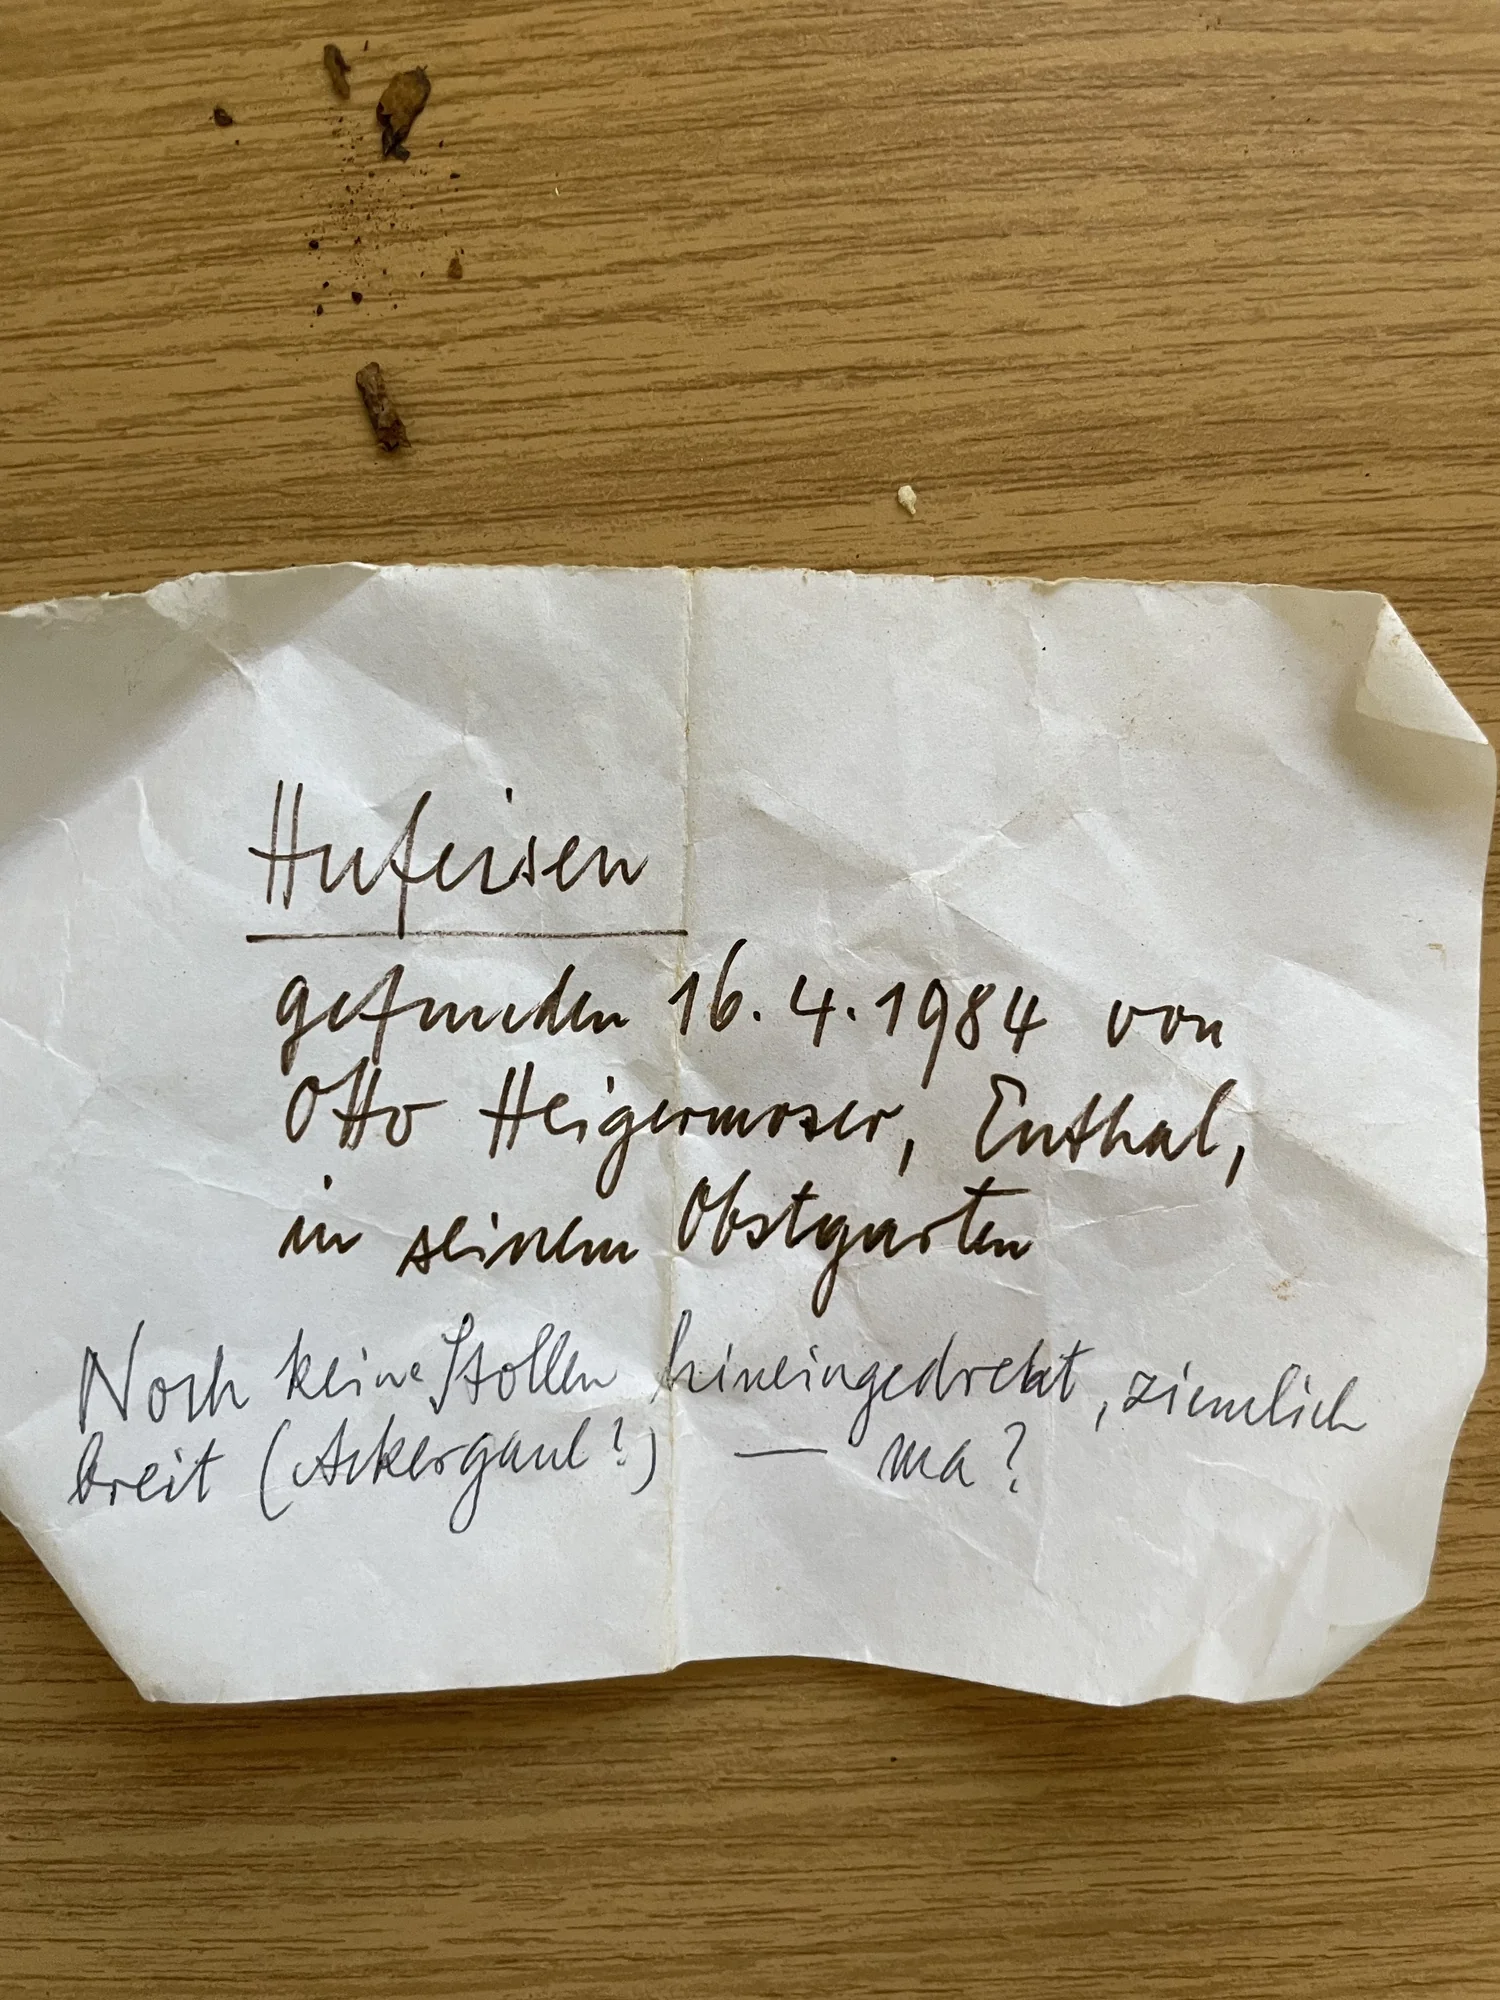 Hufeisen
gefunden 16.4.1984 von
Otto Heigermoser, Enthal,
in seinem Obstgarten
Noch keine Stollen hineingedreht, ziemlich
breit (Ackergaul?) — ma?